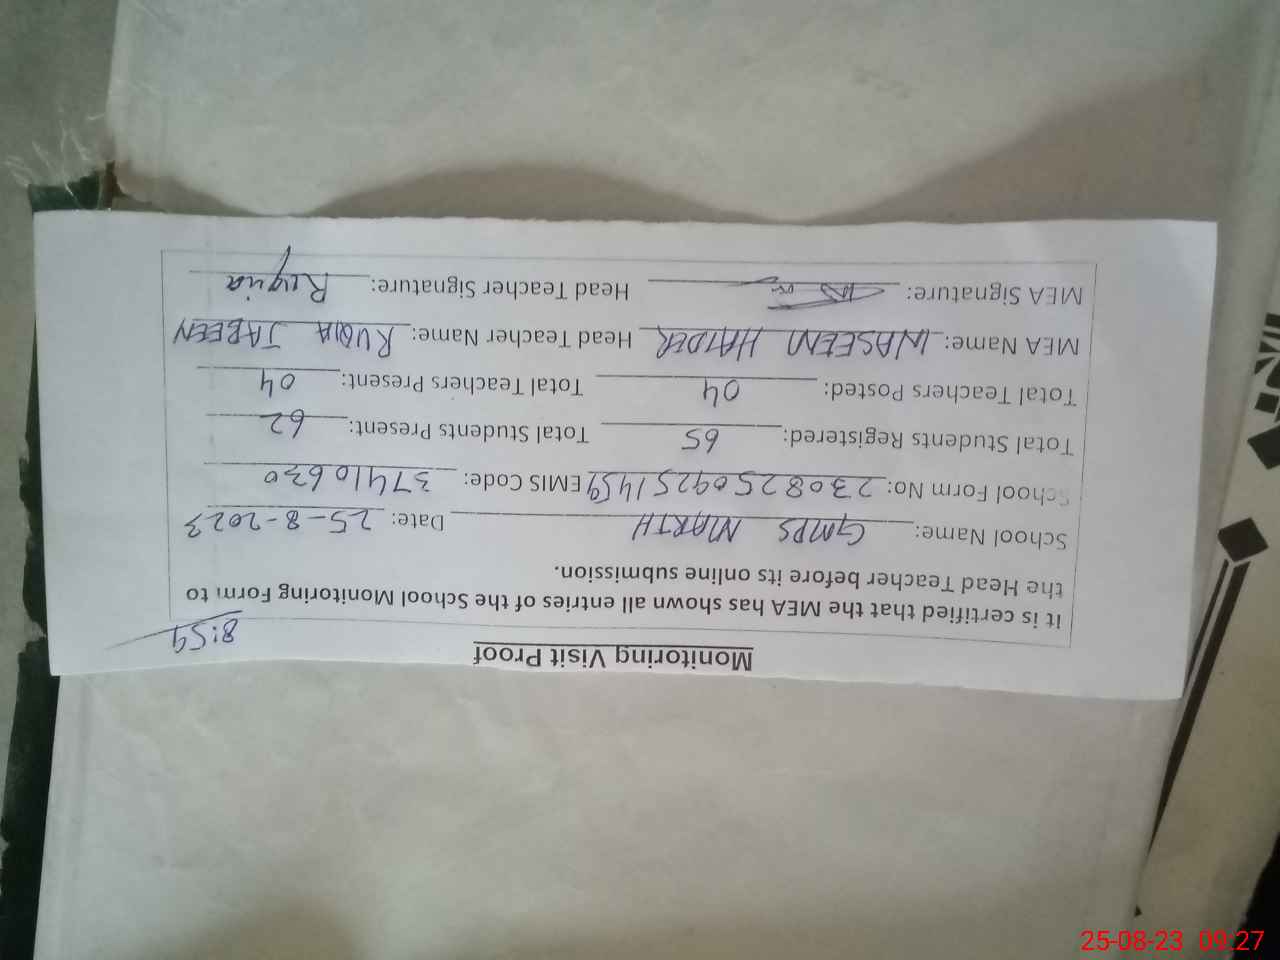 Monitoring Visit Proof
8:59
It is certified that the MEA has shown all entries of the School Monitoring Form to
the Head Teacher before its online submission.
School Name: GMPS MARTH Date: 25-8-2023
School Form No: 23082509251459 EMIS Code: 37410630
Total Students Registered: 65 Total Students Present: 62
Total Teachers Posted: 04 Total Teachers Present: 04
MEA Name: WASEEM HAIDER Head Teacher Name: RUQIA JABEEN
MEA Signature: Head Teacher Signature: Ruqia
25-08-23 09:27